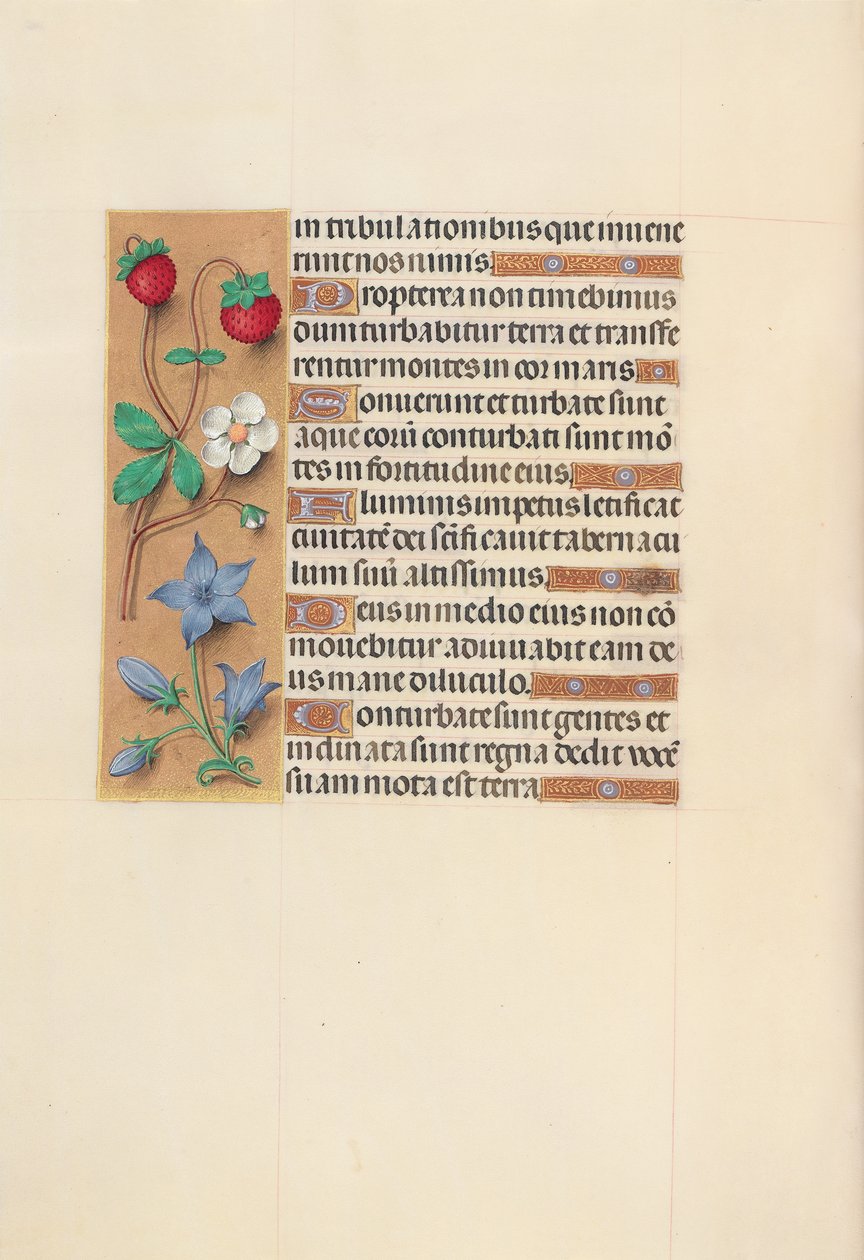 in tribulationibus que inuene
runt nos nimis.
Propterea non timebimus
dum turbabitur terra et transfe
rentur montes in cor maris
Sonuerunt et turbate sunt
aque eorū conturbati sunt mō
tes in fortitudine eius.
Fluminis impetus letificat
ciuitatē dei scīficauit tabernacu
lum suū altissimus.
Deus in medio eius non cō
mouebitur adiuuabit eam de
us mane diluculo.
Conturbate sunt gentes et
inclinata sunt regna dedit vocē
suam mota est terra